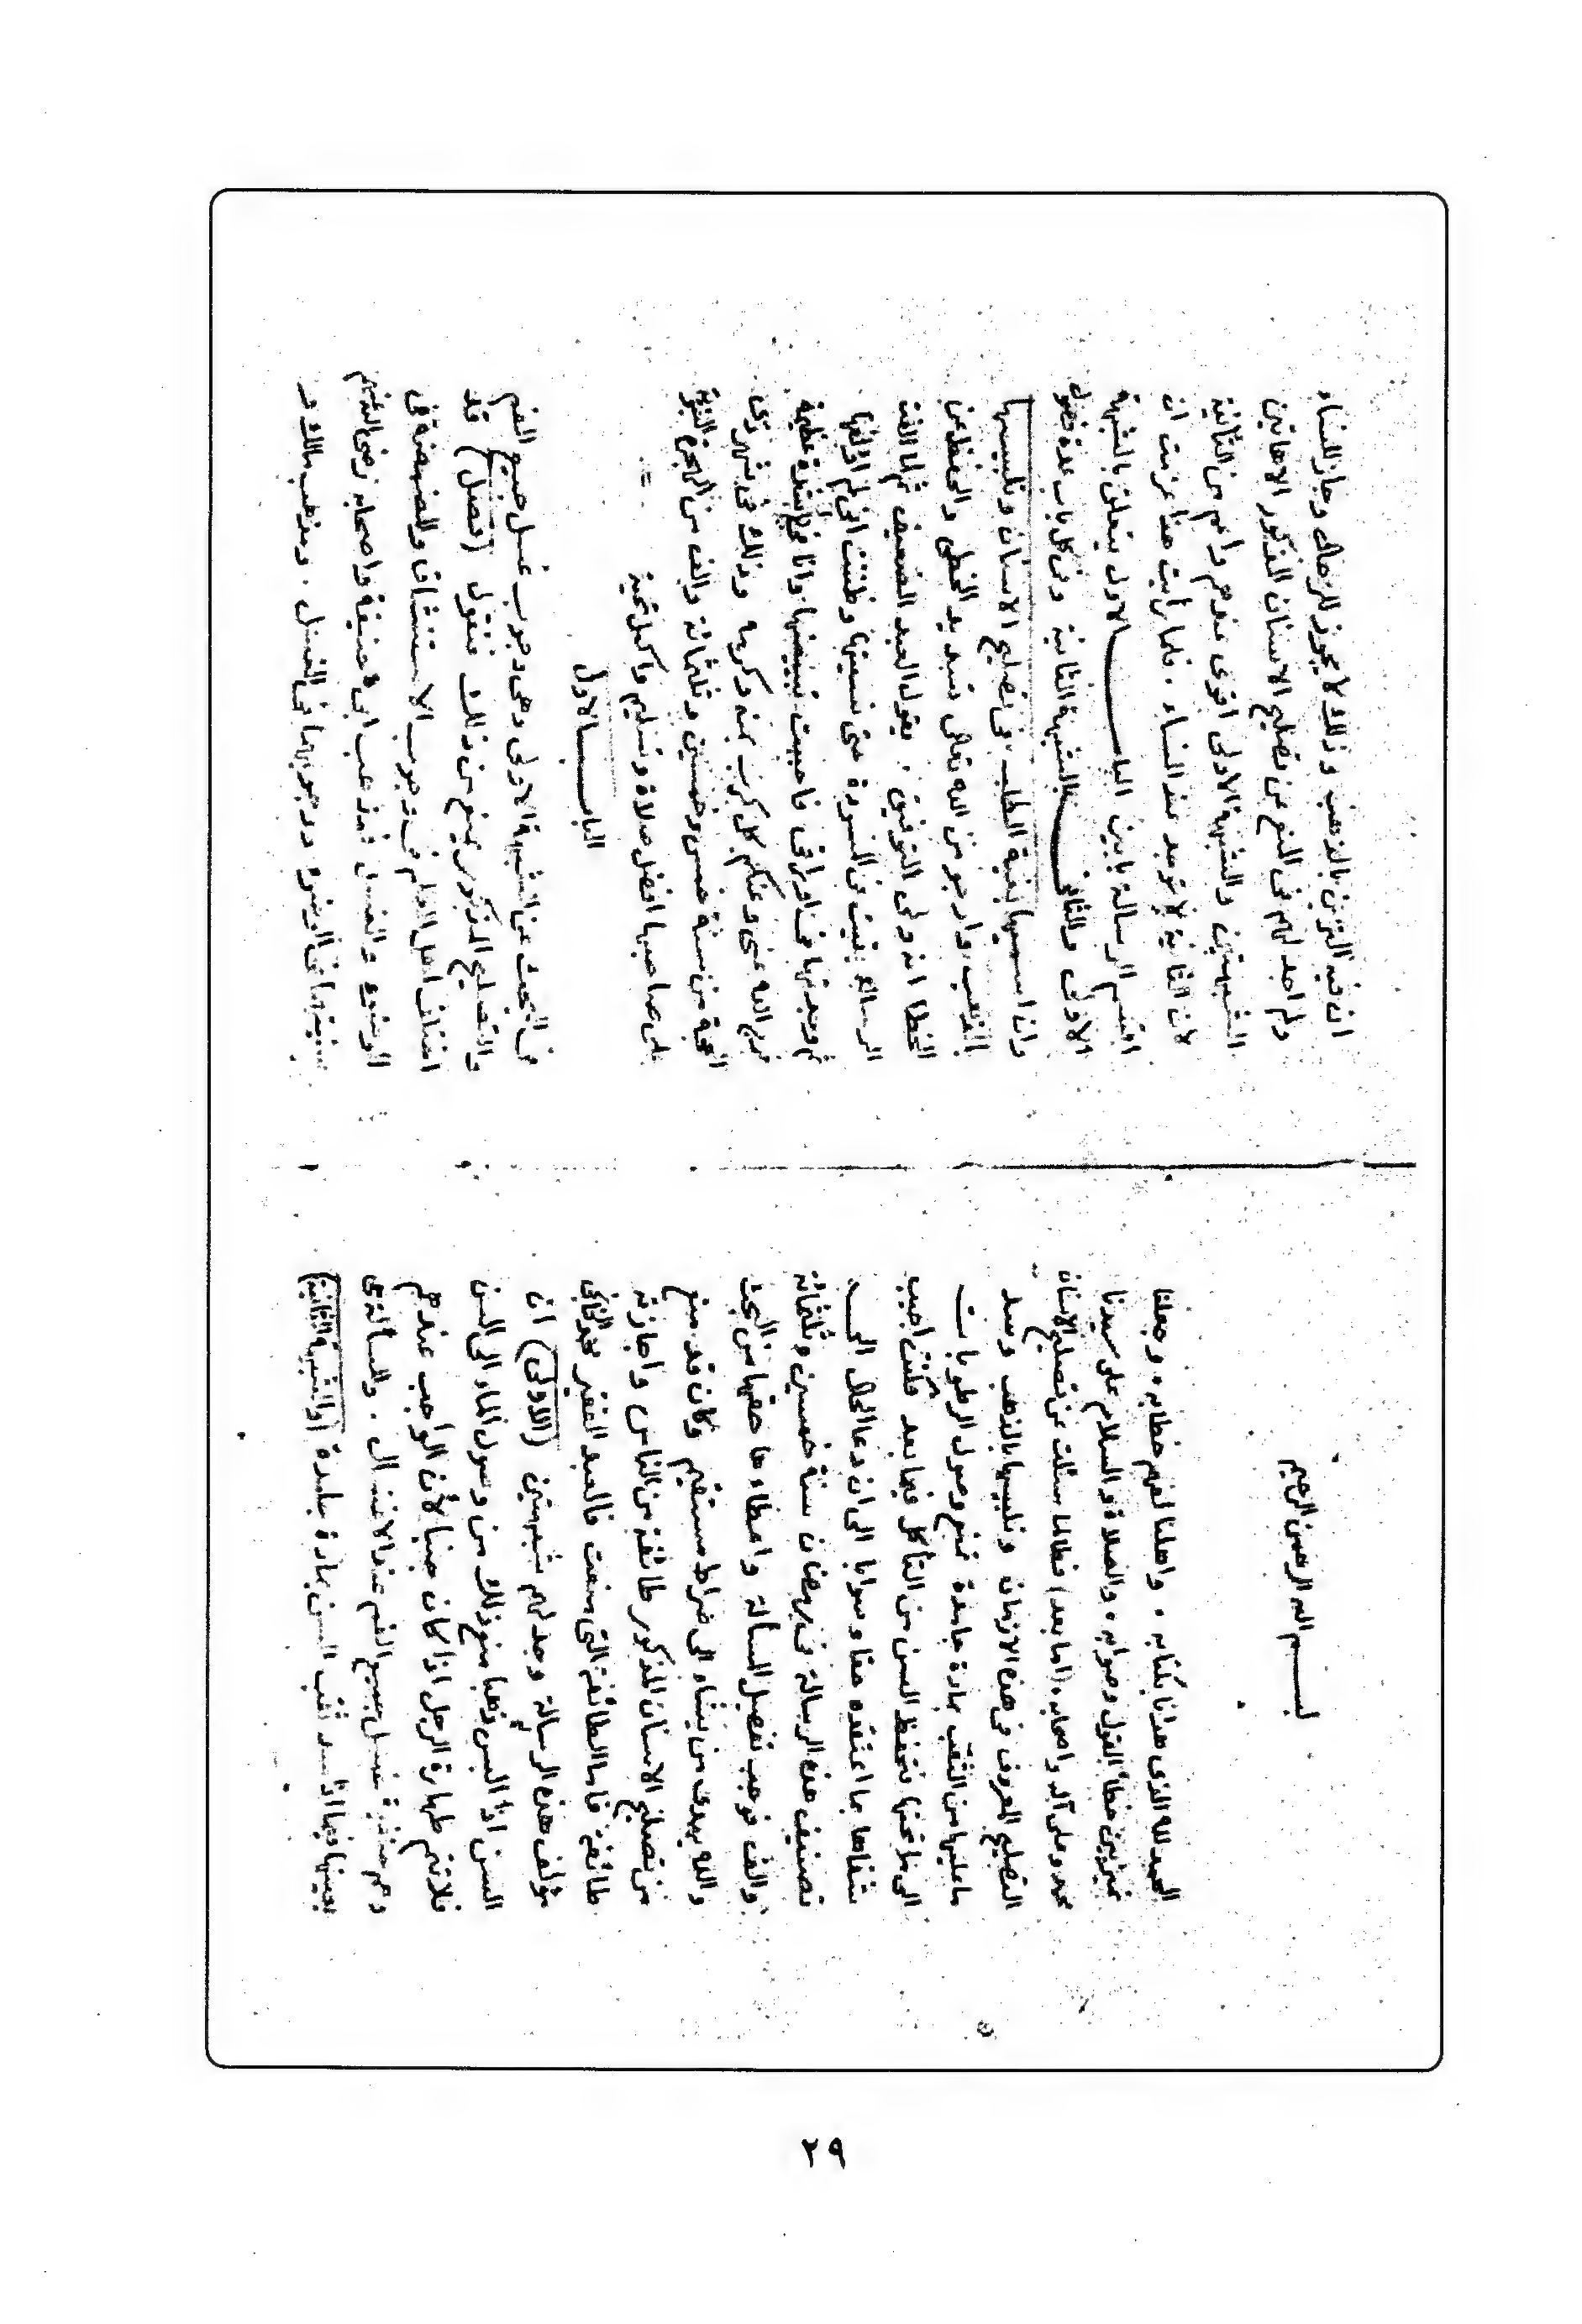 بسم الله الرحمن الرحيم
الحمد لله الذى هدانا بكتابه . واهلنا لفهم خطابه . وجعلنا
نميز بين خطأ القول وصوابه . والصلاة والسلام على سيدنا
محمد وعلى آله واصحابه . (اما بعد) فطالما سئلت عن تصليح الاسنان
التصليح المعروف فى هذه الازمان وتلبيسها بالذهب وسد
ما عليها من الثقب بمادة جامدة تمنع وصول الرطوبات
الى ما تحتها فتحفظ السن من التأكل فيما بعد فكنت اجيب
شفاها بما اعتقده حقا وصوابا الى ان دعا الحال الى
تصنيف هذه الرسالة فى رمضان سنة خمسين وثلثمائة
والف فوجب تفصيل المسألة واعطاءها حقها من البحث
والله يهدى من يشاء الى صراط مستقيم وكان قد منع
من تصليح الاسنان المذكور طائفة من الناس واجازته
طائفة فاما الطائفة التى منعت قال العبد الفقير
مؤلف هذه الرسالة وجد لهم شبهتين (الاولى) ان
السن اذا البس ذهبا منع ذلك من وصول الماء الى السن
فلا تتم طهارة الرجل اذا كان جنبا لأن الواجب عندهم
وعم حنفية غسل جميع الفم عند الاغتسال . والمسألة هى
بعينها فيما اذا سد ثقب السن بمادة جامدة (والشبهة الثانية)
ان فيه التزين بالذهب وذلك لا يجوز للرجال وجاز للنساء
ولم اجد لهم فى المنع من تصليح الاسنان المذكور الا هاتين
الشبهتين والشبهة الاولى اقوى عندهم واعم من الثانية
لأن الثانية لا توجد عند النساء . فلما رأيت هذا عزمت ان
اقسم الرسالة بابين الباب الاول يتعلق بالشبهة
الاولى والثانى بالشبهة الثانية وفى كل باب عدة فصول
وان اسميها بغية الطلب فى تصليح الاسنان وتلبيسها
بالذهب وارجو من الله تعالى تسديد الخطى والحفظ عن
الخطا انه ولى التوفيق . يقول العبد الضعيف ثم لما الفت
الرسالة بقيت فى المسودة حتى نسيتها وظننت انى لم اؤلفها
ثم وجدتها فى اوراقى فاحببت تبييضها وانا فى شدة عظيمة
فرج الله عنى وعنكم كل كرب بمنه وكرمه وذلك فى شهر ذى
الحجة من سنة خمس وخمسين وثلثمائة والف من الهجرة النبوية
على صاحبها افضل صلاة وتسليم واكمل تحية
الباب الاول
فى البحث عن الشبهة الاولى وهى وجوب غسل جميع الفم
والتصليح المذكور يمنع من ذلك فنقول (فصل) قد
اختلف اهل العلم فى وجوب الاستنشاق والمضمضة فى
الوضوء والغسل فمذهب ابى حنيفة واصحابه رضى الله عنهم
سنيتهما فى الوضوء ووجوبهما فى الغسل . ومذهب مالك و
٢٩